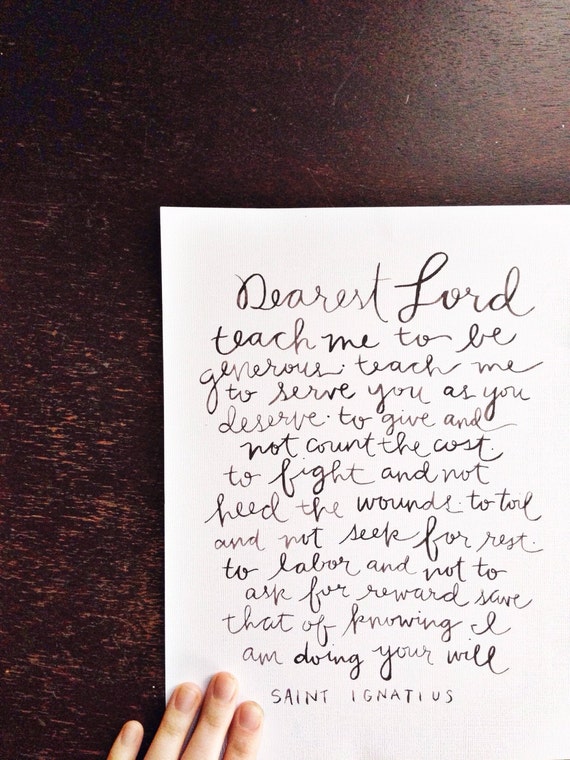 Dearest Lord
teach me to be
generous. teach me
to serve you as you
deserve. to give and
not count the cost.
to fight and not
heed the wounds. to toil
and not seek for rest.
to labor and not to
ask for reward save
that of knowing I
am doing your will
SAINT IGNATIUS